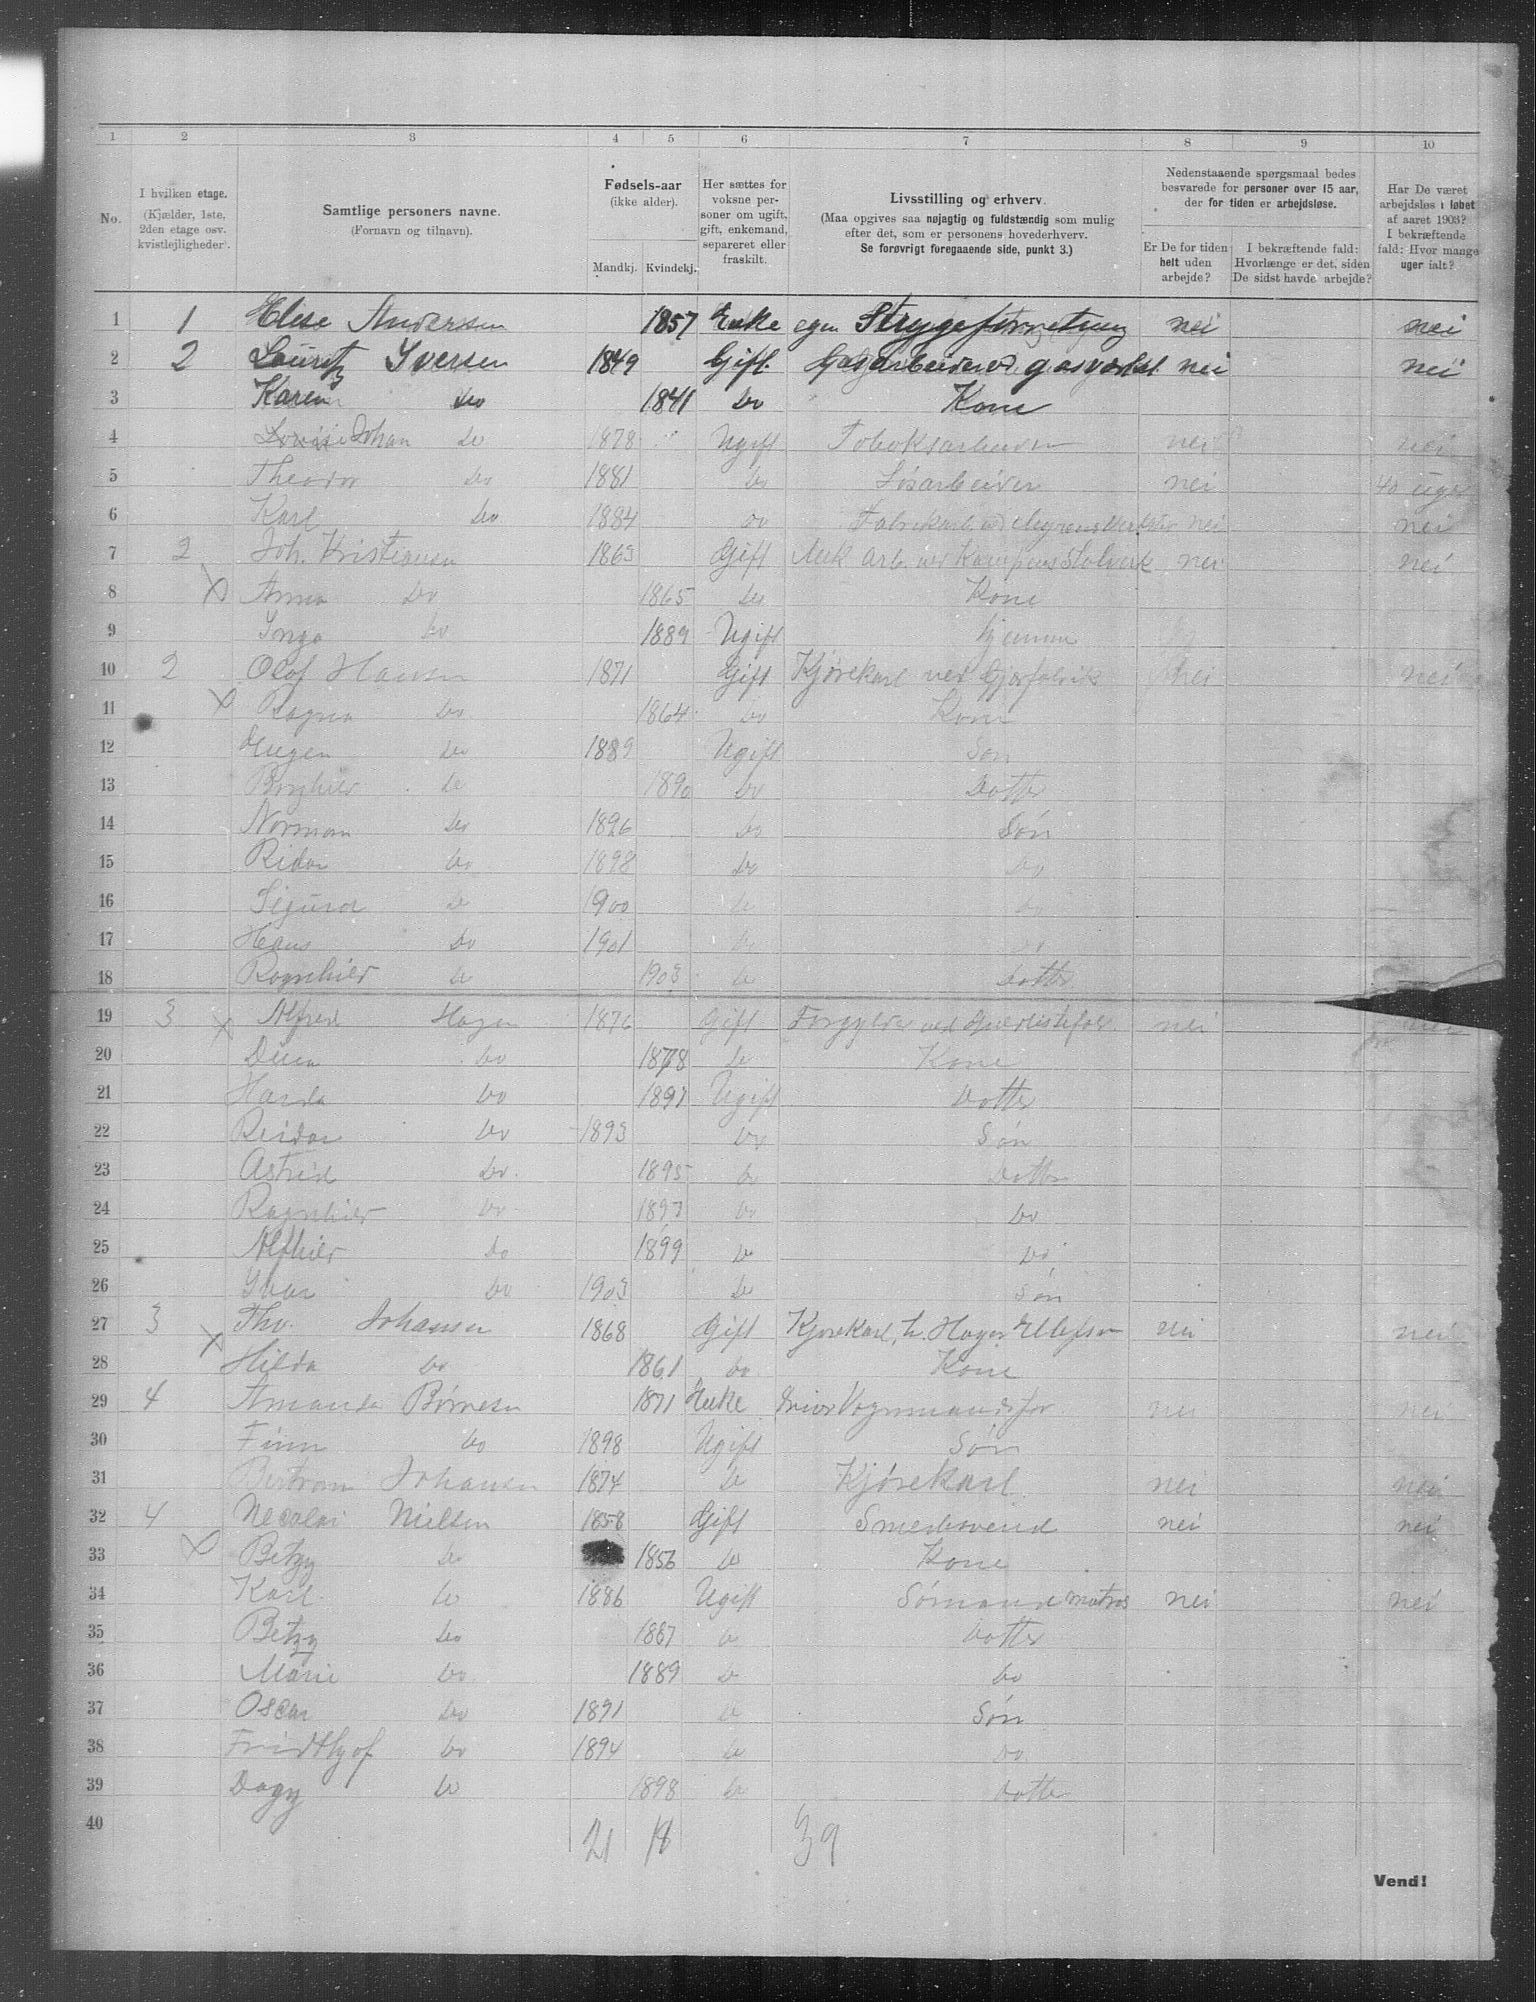 1 2 3 4 5 6 7 8 9 10
No.
I hvilken etage.
(Kjælder, 1ste,
2den etage osv.
kvistlejligheder.
Samtlige personers navne.
(Fornavn og tilnavn).
Fødsels-aar
(ikke alder).
Mandkj. Kvindekj.
Her sættes for
voksne per-
soner om ugift,
gift, enkemand,
separeret eller
fraskilt.
Livsstilling og erhverv.
(Maa opgives saa nøjagtig og fuldstændig som mulig
efter det, som er personens hovederhverv.
Se forøvrigt foregaaende side, punkt 3.)
Nedenstaaende spørgsmaal bedes
besvarede for personer over 15 aar,
der for tiden er arbejdsløse.
Er De for tiden
helt uden
arbejde?
I bekræftende fald:
Hvorlænge er det, siden
De sidst havde arbejde?
Har De været
arbejdsløs i løbet
af aaret 1903?
I bekræftende
fald: Hvor mange
uger ialt?
1 1 Elise Andersen 1857 Enke egen Strygeforretning nei nei
2 2 Lauritz Iversen 1849 Gift. Gasarbeider vd gasværket nei nei
3 Karen Do 1841 Do Kone
4 Johan Do 1878 Ugift Tobaksarbeider nei nei
5 Theodor Do 1881 Do Løsarbeider nei 40 uger
6 Karl Do 1884 Do nei nei
7 2 Joh. Kristiansen 1863 Gift Mek arb. ved Kampens Stolverk nei nei
8 X Anna Do 1865 Do Kone
9 Inga Do 1889 Ugift hjemme
10 2 Olof Hansen 1871 Gift Kjørekarl ved Gjærfabrik nei nei
11 X Ragna Do 1864 Do Kone
12 Eugen Do 1889 Ugift Søn
13 Borghild Do 1890 Do Datter
14 Norman Do 1896 Do Søn
15 Ridar Do 1898 Do Do
16 Sigurd Do 1900 Do Do
17 Hans Do 1901 Do Do
18 Ragnhild Do 1903 Do Datter
19 3 X Alfred Hagen 1876 Gift Forgylder ved nei nei
20 Do 1878 Do Kone
21 Do 1891 Ugift Datter
22 Reidar Do 1893 Do Søn
23 Astrid Do 1895 Do Datter
24 Ragnhild Do 1897 Do Do
25 Alfhild Do 1899 Do Do
26 Ivar Do 1903 Do Søn
27 3 X Tho. Johansen 1868 Gift Kjørekarl h. Hagen Ellefsen nei nei
28 Hilda Do 1861 Do Kone
29 4 Amanda 1871 Enke nei nei
30 Finn Do 1898 Ugift Søn
31 Bertram Johansen 1874 Do Kjørekarl nei nei
32 4 Necolai Nielsen 1858 Gift Smedsvend nei nei
33 X Betzy Do 1856 Do Kone
34 Karl Do 1886 Ugift Sømand matros nei nei
35 Betzy Do 1887 Do Datter
36 Marie Do 1889 Do Do
37 Oscar Do 1891 Do Søn
38 Fridthjof Do 1894 Do Do
39 Dagy Do 1898 Do Datter
40 21 18 39
Vend!